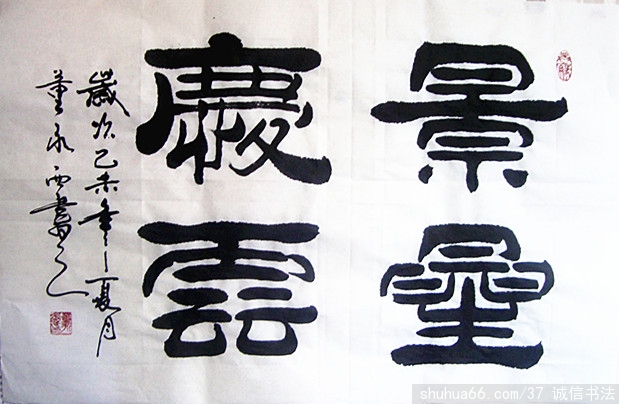 景曐
慶雲
歲次乙未年夏月
董永西書之
shuhua66.com/37 诚信书法